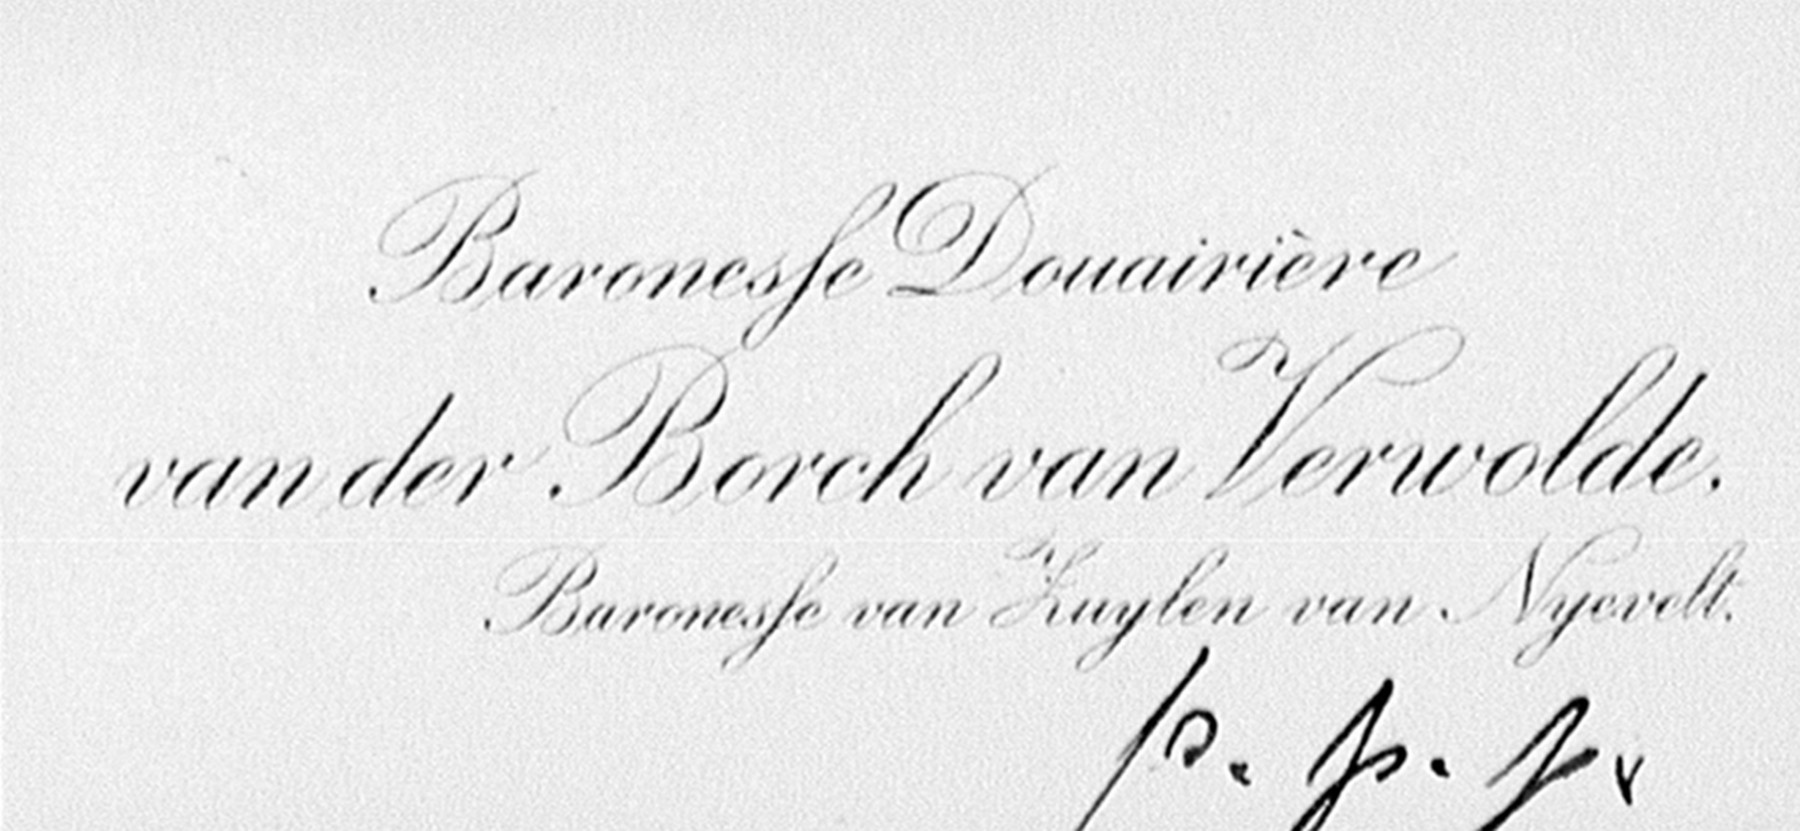 Baronesse Douairière
van der Borch van Verwolde.
Baronesse van Zuylen van Nyevelt.
p. p.